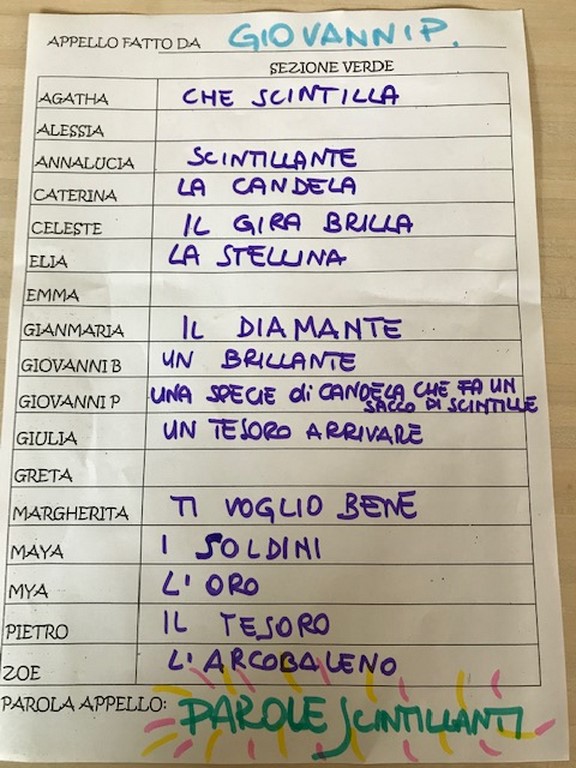 APPELLO FATTO DA GIOVANNI P.
SEZIONE VERDE
AGATHA CHE SCINTILLA
ALESSIA
ANNALUCIA SCINTILLANTE
CATERINA LA CANDELA
CELESTE IL GIRA BRILLA
ELIA LA STELLINA
EMMA
GIANMARIA IL DIAMANTE
GIOVANNI B UN BRILLANTE
GIOVANNI P UNA SPECIE di CANDELA CHE FA UN
SACCO DI SCINTILLE
GIULIA UN TESORO ARRIVARE
GRETA
MARGHERITA TI VOGLIO BENE
MAYA I SOLDINI
MYA L'ORO
PIETRO IL TESORO
ZOE L'ARCOBALENO
PAROLA APPELLO: PAROLE SCINTILLANTI